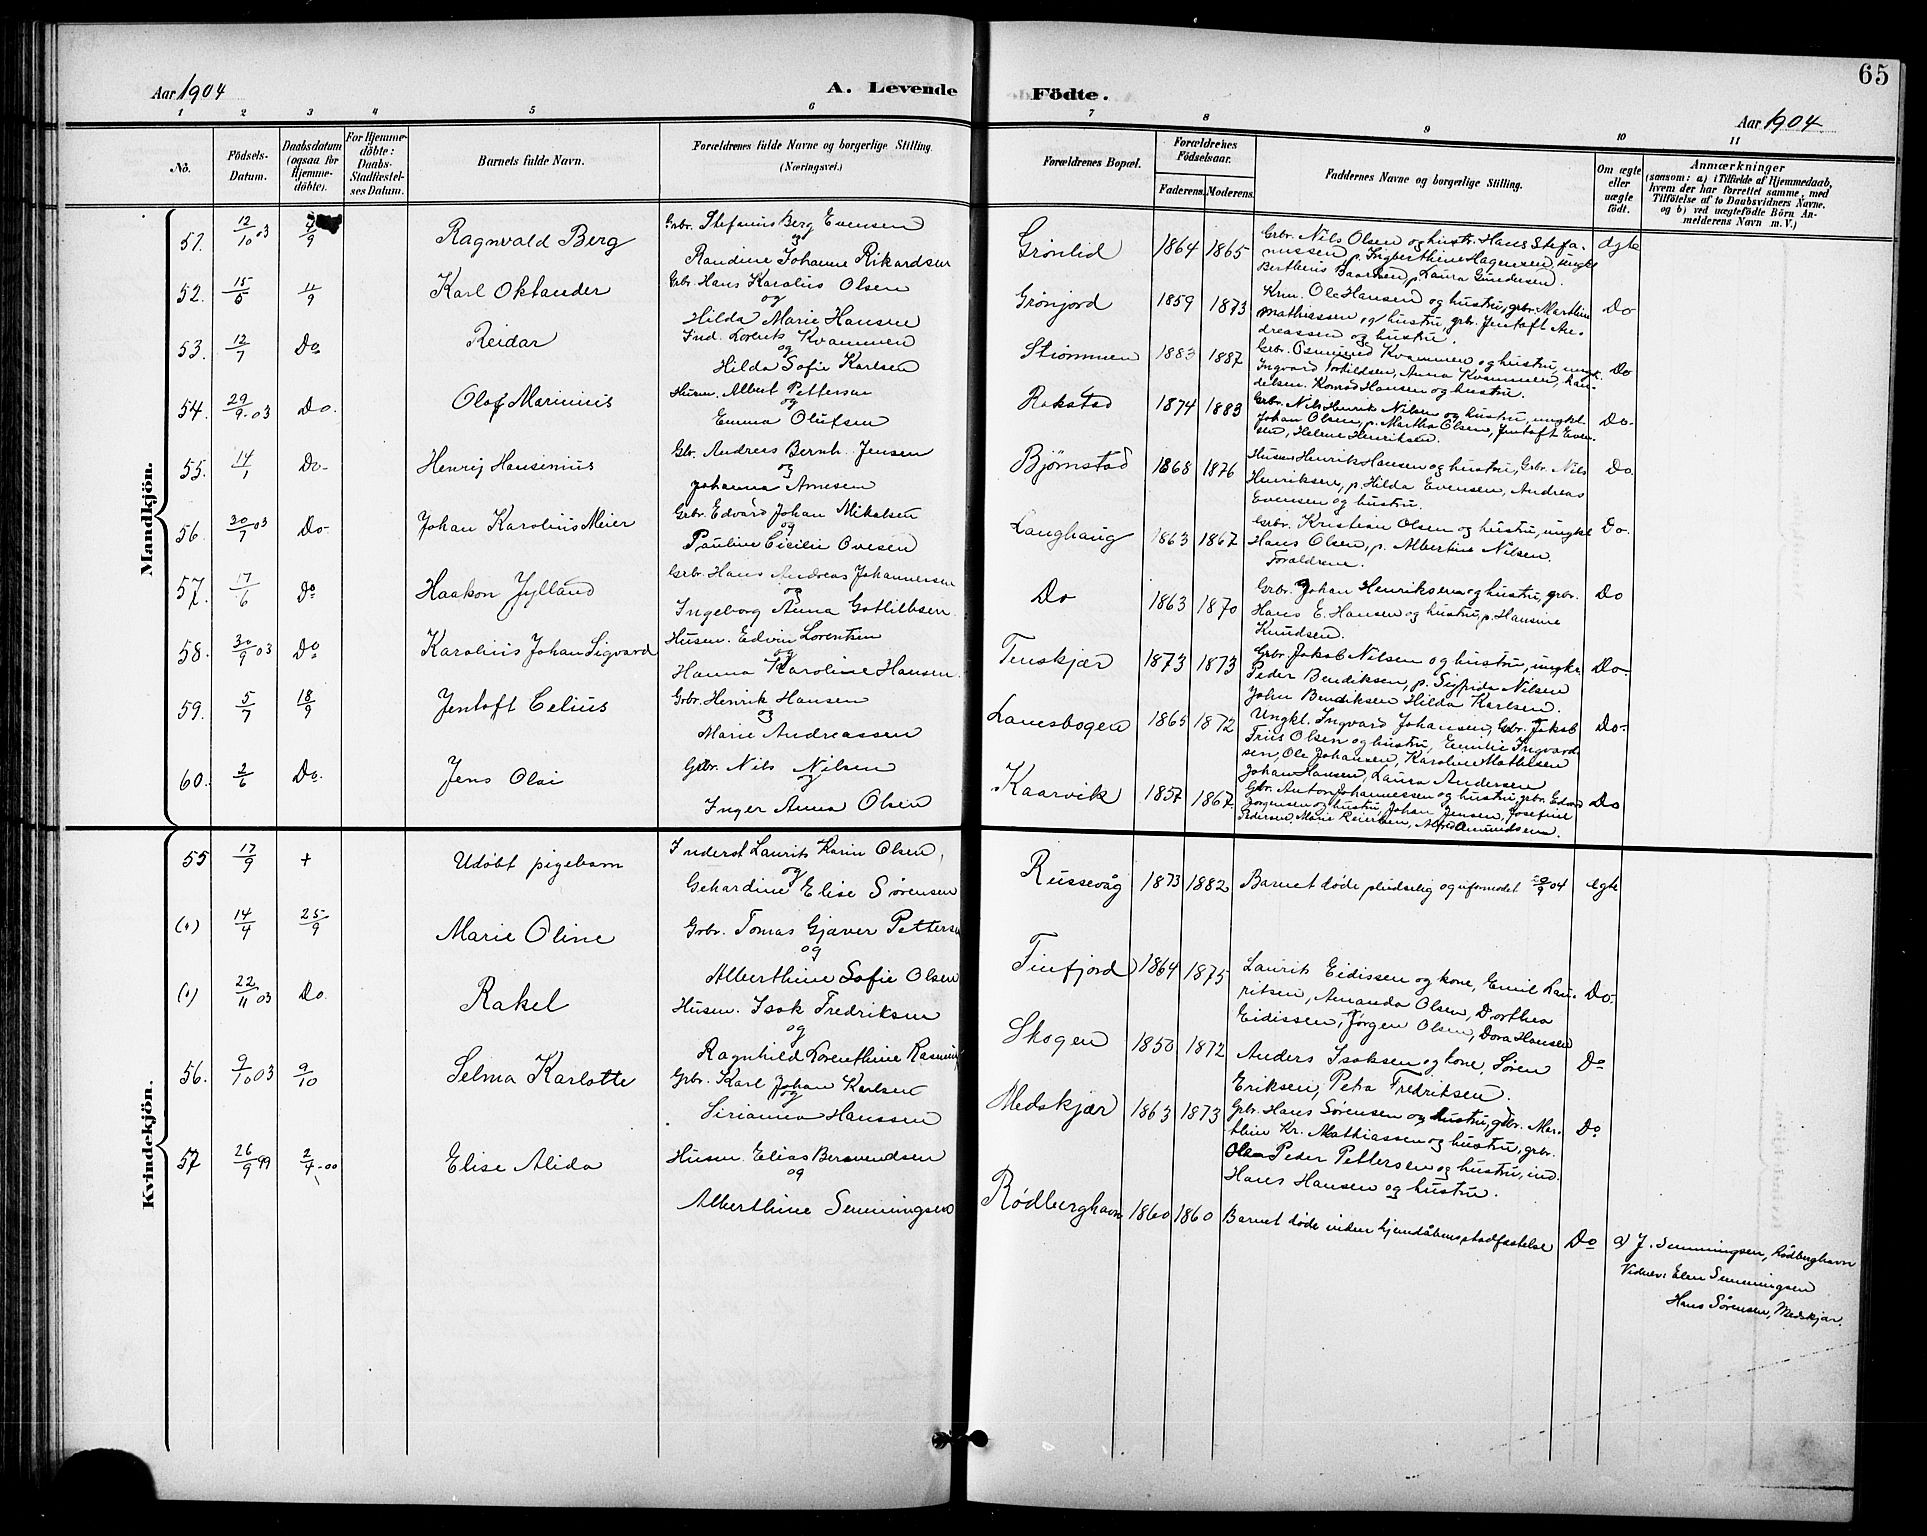 65
Aar 1904
A. Levende
Födte.
Aar 1904
1 2 3 4 5 6 7 8 9 10 11
No.
Födsels-
Datum.
Daabsdatum
(ogsaa for
Hjemme-
döbte).
For Hjemme-
döbte:
Daabs-
Stadfæstel-
ses Datum.
Barnets fulde Navn.
Forældrenes fulde Navne og borgerlige Stilling.
(Næringsvei.)
Forældrenes Bopæl.
Forældrenes
Födselsaar.
Faderens. Moderens.
Faddernes Navne og borgerlige Stilling.
Om ægte
eller
uægte
födt.
Anmærkninger
(saasom: a) i Tilfælde af Hjemmedaab,
hvem der har forrettet samme, med
Tilföielse af to Daabsvidners Navne.
og b) ved uægtefödte Börn An-
melderens Navn m. V.)
Mandkjön.
51. 12/10 03 4/9 Ragnvald Berg
Grbr. Stefanus Berg Evensen
og
Randine Johanne Rikardsen
Grönlid 1864 1865
Grbr. Nils Olsen og hustr. Hans Stefa-
nussen, p. Ingberthine Hagensen, ungkl
Berthius Baardsen, p. Laura Gundersen.
ægte
52. 15/5 11/9 Karl Oktander
Grbr. Hans Karolius Olsen
og
Hilda Marie Hansen
Grönjord 1859 1873
Krm. Ole Hansen og hustru, grbr. Marthin
Mathiassen og hustru, grbr. Jentoft An-
dreassen og hustru.
Do
53. 12/7 Do Reidar
Ind. Lorents Kvammen
og
Hilda Sofie Karlsen
Strömmen 1883 1887
Grbr. Osmund Kvammen og hustru, ungk.
Ingvard Torkildsen, Anna Kvammen, han-
delsm. Konrad Hansen og hustru.
Do
54. 29/9 03 Do. Olaf Marinius
Husm. Albert Pettersen
og
Emma Olufsen
Rakstad 1874 1883
Grbr. Nils Henrik Nilsen og hustru, ungkl.
Johan Olsen, p. Martha Olsen, Jentoft Even-
sen, Helene Henriksen.
Do-
55. 14/1 Do- Henrij Hansinius
Gbr. Andreas Bernh. Jensen
og
Johanna Arnesen
Bjørnstad 1868 1876
Husm Henrik Hansen og hustru, Grbr. Nils
Henriksen, p. Hilda Evensen, Andreas
Evensen og hustru.
Do.
56. 30/7 03 Do- Johan Karolius Meier
Grbr. Edvard Johan Mikalsen
og
Pauline Cicilie Ovesen
Langhaug 1863 1867
Grbr. Kristian Olsen og hustru, ungkl
Hans Olsen, p. Albertine Nilsen.
Forældrene.
Do.
57. 17/6 Do Haakon Jylland
Grbr. Hans Andreas Johannesen
og
Ingeborg Anna Gotlibsen.
Do 1863 1870
Grbr. Johan Henriksen og hustru, grbr.
Hans E. Hansen og hustru, p. Hansine
Knudsen.
Do
58. 30/9 03 Do Karolius Johan Sigvard
Husm. Edvin Lorentsen
og
Hanna Karoline Hansen.
Tenskjær 1873 1873
Grbr. Jakob Nilsen og hustru, ungkr
Peder Bendiksen, p. Sigfrida Nilsen
John Bendiksen Hilda Karlsen.
Do-
59. 5/7 18/9 Jentoft Celius
Grbr. Henrik Hansen
og
Marie Andreassen
Lanesbogen 1865 1872
Ungkl. Ingvard Johansen, Grbr. Jakob
Friis Olsen og hustru, Emilie Ingvard-
sen, Ole Johansen, Karoline Mathisen
Johan Hansen, Laura Andersen
Do-
60. 2/6 Do. Jens Olai
Grbr. Nils Nilsen
og
Inger Anna Olsen
Kaarvik 1857 1867
Gbr. Anton Johannessen og hustru, grbr. Edvard
Jørgensen og hustru, Johan Jensen, Josefine
Pedersen, Marie Reiersen, Alfr. Amundsen.
Do
Kvindekjön.
55 17/9 + Udöbt pigebarn
Inderst Laurits Karin Olsen,
og
Gehardine Elise Sørensen
Russevåg 1873 1882
Barnet døde pludselig og uformodet 20/9 04
ægte
(1) 14/4 25/9 Marie Oline
Grbr. Tomas Gjæver Petterse
og
Alberthine Sofie Olsen
Finfjord 1864 1875
Laurits Eidissen og kone, Emil Lau-
ritsen, Amanda Olsen, Dorthea
Eidissen, Jørgen Olsen, Dora Hansen
Do.
(1) 22/11 03 Do. Rakel
Husm. Isak Fredriksen
og
Ragnhild Lorenthine
Skogen 1850 1872
Anders Isaksen og kone, Sören
Eriksen, Petra Fredriksen.
Do
56. 9/10 03 9/10 Selma Karlotte
Grbr. Karl Johan Karlsen
og
Sirianna Hanssen
Medskjær 1863 1873
Grbr. Hans Sørensen og hustru, grbr. Mar-
thin Kr. Mathiassen og hustru, grbr.
Ole Peder Pettersen og hustru, ind.
Hans Hansen og hustru.
Do
57 26/9 99 2/4-00 Elise Alida
Husm. Elias Bersvendsen
og
Alberthine Semmingsen
Rödberghavn 1860 1860
Barnet døde inden hjemdåbens stadfæstelse
Do
a) J. Semmingsen, Rödberghavn
Vidner: Elen Semmingsen
Hans Sørensen, Medskjær.